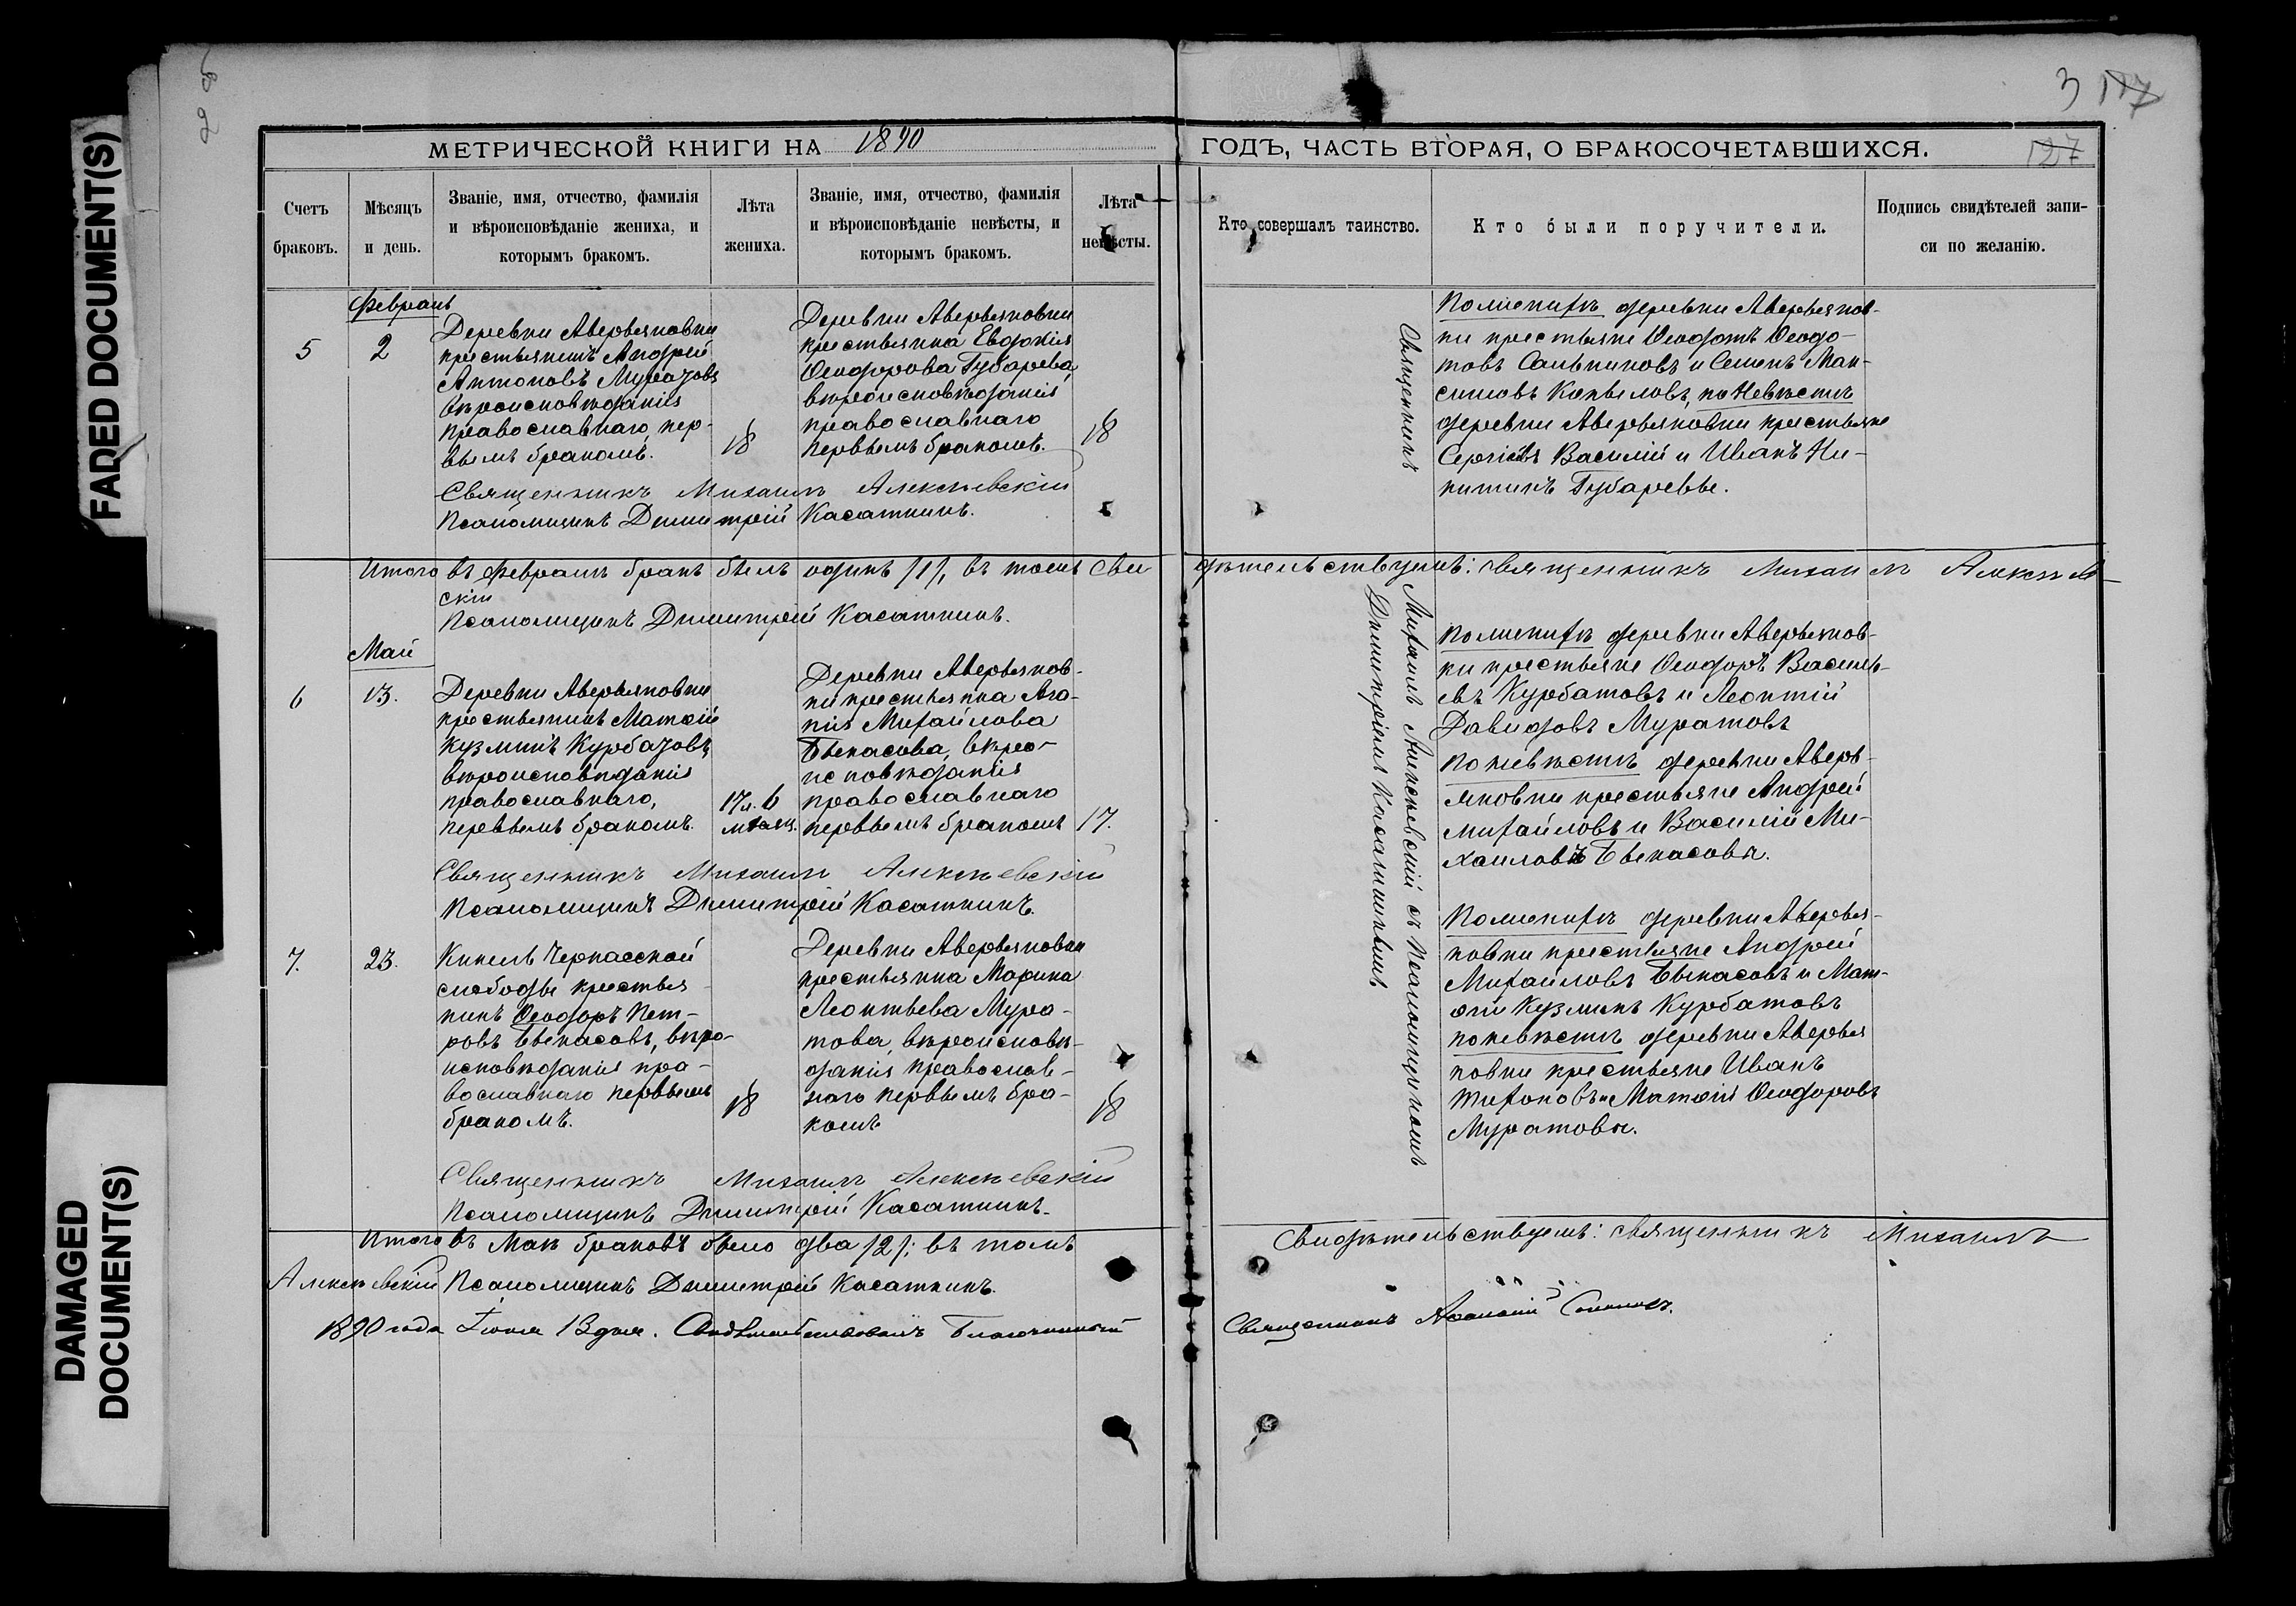 FADED DOCUMENT(S)
DAMAGED
DOCUMENT(S)
3 117
127
МЕТРИЧЕСКОЙ КНИГИ НА 1890
ГОДЪ, ЧАСТЬ ВТОРАЯ, О БРАКОСОЧЕТАВШИХСЯ.
Счетъ
браковъ.
Мѣсяцъ
и день.
Званіе, имя, отчество, фамилія
и вѣроисповѣданіе жениха, и
которымъ бракомъ.
Лѣта
жениха.
Званіе, имя, отчество, фамилія
и вѣроисповѣданіе невѣсты, и
которымъ бракомъ.
Лѣта
невѣсты.
Кто совершалъ таинство.
Кто были поручители.
Подпись свидѣтелей запи-
си по желанію.
Февраль
5
2
Деревни Аверьяновки
крестьянинъ Андрей
Антоновъ Муратовъ
вѣроисповѣданія
православнаго, пер-
вымъ бракомъ.
18
Деревни Аверьяновки
крестьянка Евдокія
Ѳеодорова Губарева,
вѣроисповѣданія
православнаго
первымъ бракомъ.
18
Священникъ Михаилъ Алексѣевскій
Псаломщикъ Димитрій Касаткинъ.
По женихѣ деревни Аверьянов-
ки крестьяне Ѳеодотъ Ѳеодо-
товъ Сальниковъ и Семенъ Мак-
симовъ Копыловъ, по невѣстѣ
деревни Аверьяновки крестьяне
Сергіевъ Василій и Иванъ Ни-
китинъ Губаревы.
Итого въ февралѣ бракъ былъ одинъ /1/, въ томъ сви
дѣтельствуемъ: Священникъ Михаилъ Алексѣев-
скій
Псаломщикъ Димитрій Касаткинъ.
Май
6
13.
Деревни Аверьяновки
крестьянинъ Матѳій
Кузминъ Курбатовъ
вѣроисповѣданія
православнаго,
первымъ бракомъ.
17 л. 6
мѣсяц.
Деревни Аверьянов-
ки крестьянка Ага-
пія Михайлова
Бѣкасова, вѣро-
исповѣданія
православнаго
первымъ бракомъ
17.
Священникъ Михаилъ Алексѣевскій
Псаломщикъ Димитрій Касаткинъ.
По женихѣ деревни Аверьянов-
ки крестьяне Ѳеодоръ Василь-
евъ Курбатовъ и Леонтій
Давидовъ Муратовъ
по невѣстѣ деревни Аверь-
яновки крестьяне Андрей
Михайловъ и Василій Ми-
хайловъ Бѣкасовы.
7.
23.
Кинель Черкасской
слободы крестья-
нинъ Ѳеодоръ Пет-
ровъ Бѣкасовъ, вѣро-
исповѣданія пра-
вославнаго первымъ
бракомъ.
18
Деревни Аверьяновки
крестьянка Марина
Леонтьева Мура-
това, вѣроисповѣ-
данія православ-
наго первымъ бра-
комъ
18
Священникъ Михаилъ Алексѣевскій
Псаломщикъ Димитрій Касаткинъ.
По женихѣ деревни Аверья-
новки крестьяне Андрей
Михайловъ Бѣкасовъ и Мат-
ѳій Кузминъ Курбатовъ
по невѣстѣ деревни Аверья
новки крестьяне Иванъ
Тихоновъ и Матѳій Ѳеодоровъ
Муратовы.
Священникъ
Михаилъ Алексѣевскій съ Псаломщикомъ
Димитріемъ Касаткинымъ
Итого въ Маѣ браковъ было два /2/; въ томъ
Свидѣтельствуемъ: Священникъ Михаилъ
Алексѣевскій Псаломщикъ Димитрій Касаткинъ.
1890 года Іюня 13 дня. Свидѣтельствовалъ Благочинный
Священникъ